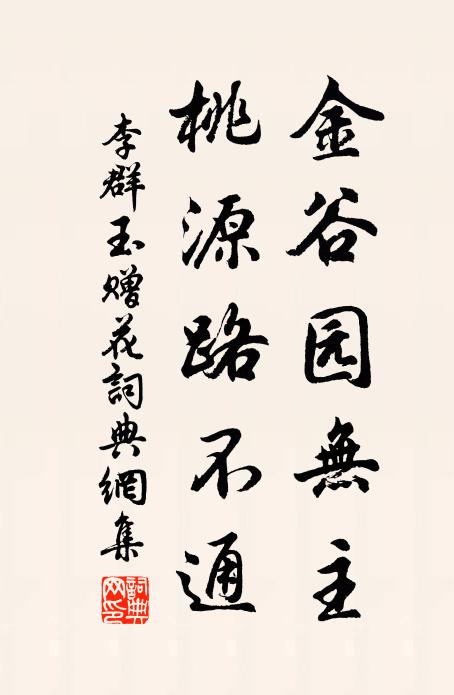 金谷园無主
桃源路不通
李群玉赠花詞典網集
詞典网印